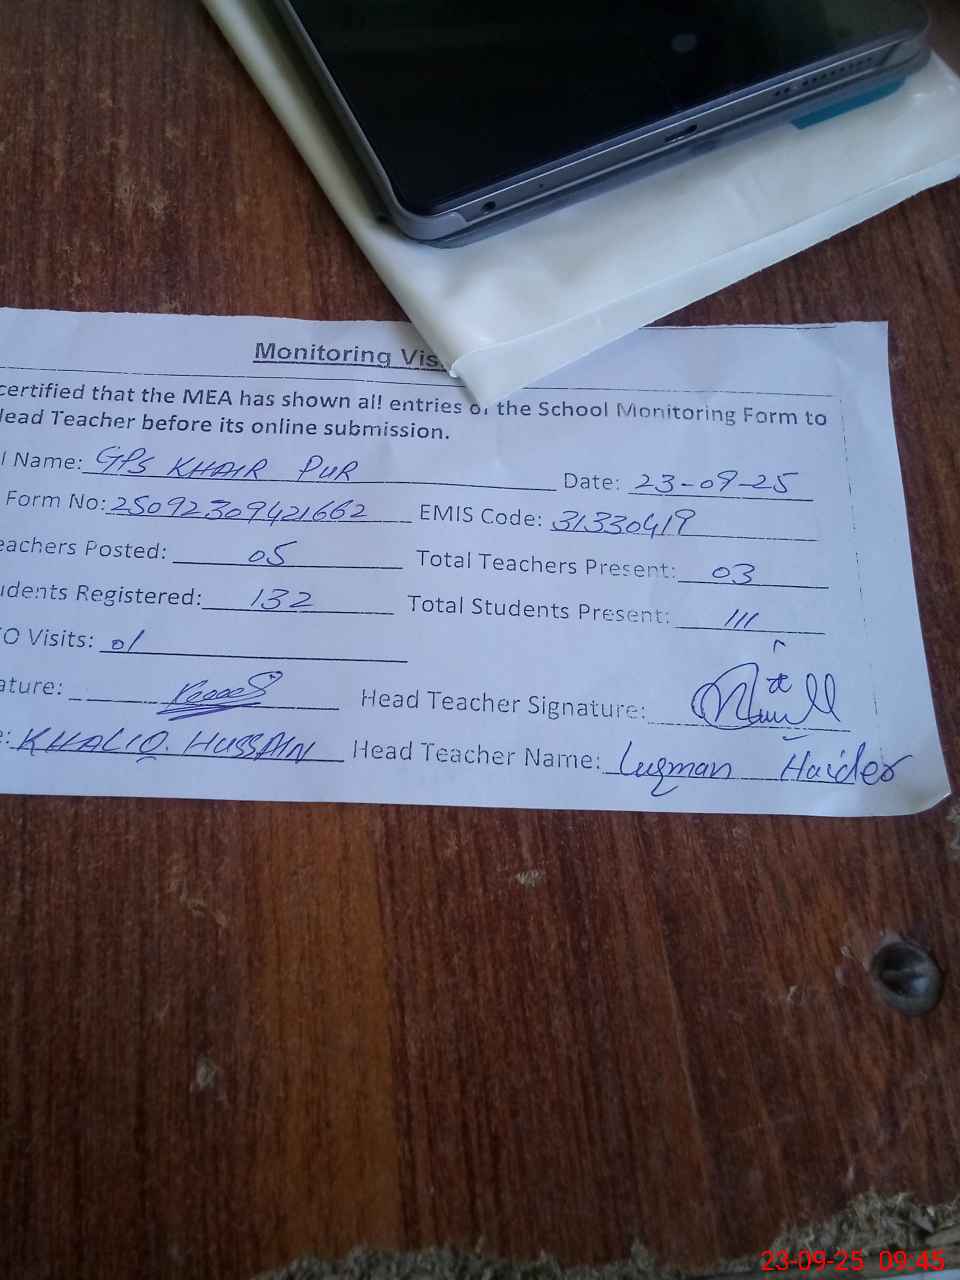 Monitoring Vis
certified that the MEA has shown all entries of the School Monitoring Form to
Head Teacher before its online submission.
l Name: GPS KHAIR PUR Date: 23-09-25
Form No: 25092309421662 EMIS Code: 31330419
eachers Posted: 05 Total Teachers Present: 03
udents Registered: 132 Total Students Present: 111
O Visits: 01
ature: Head Teacher Signature:
e: KHALIQ. HUSSAIN Head Teacher Name: Luqman Haider
23-09-25 09:45